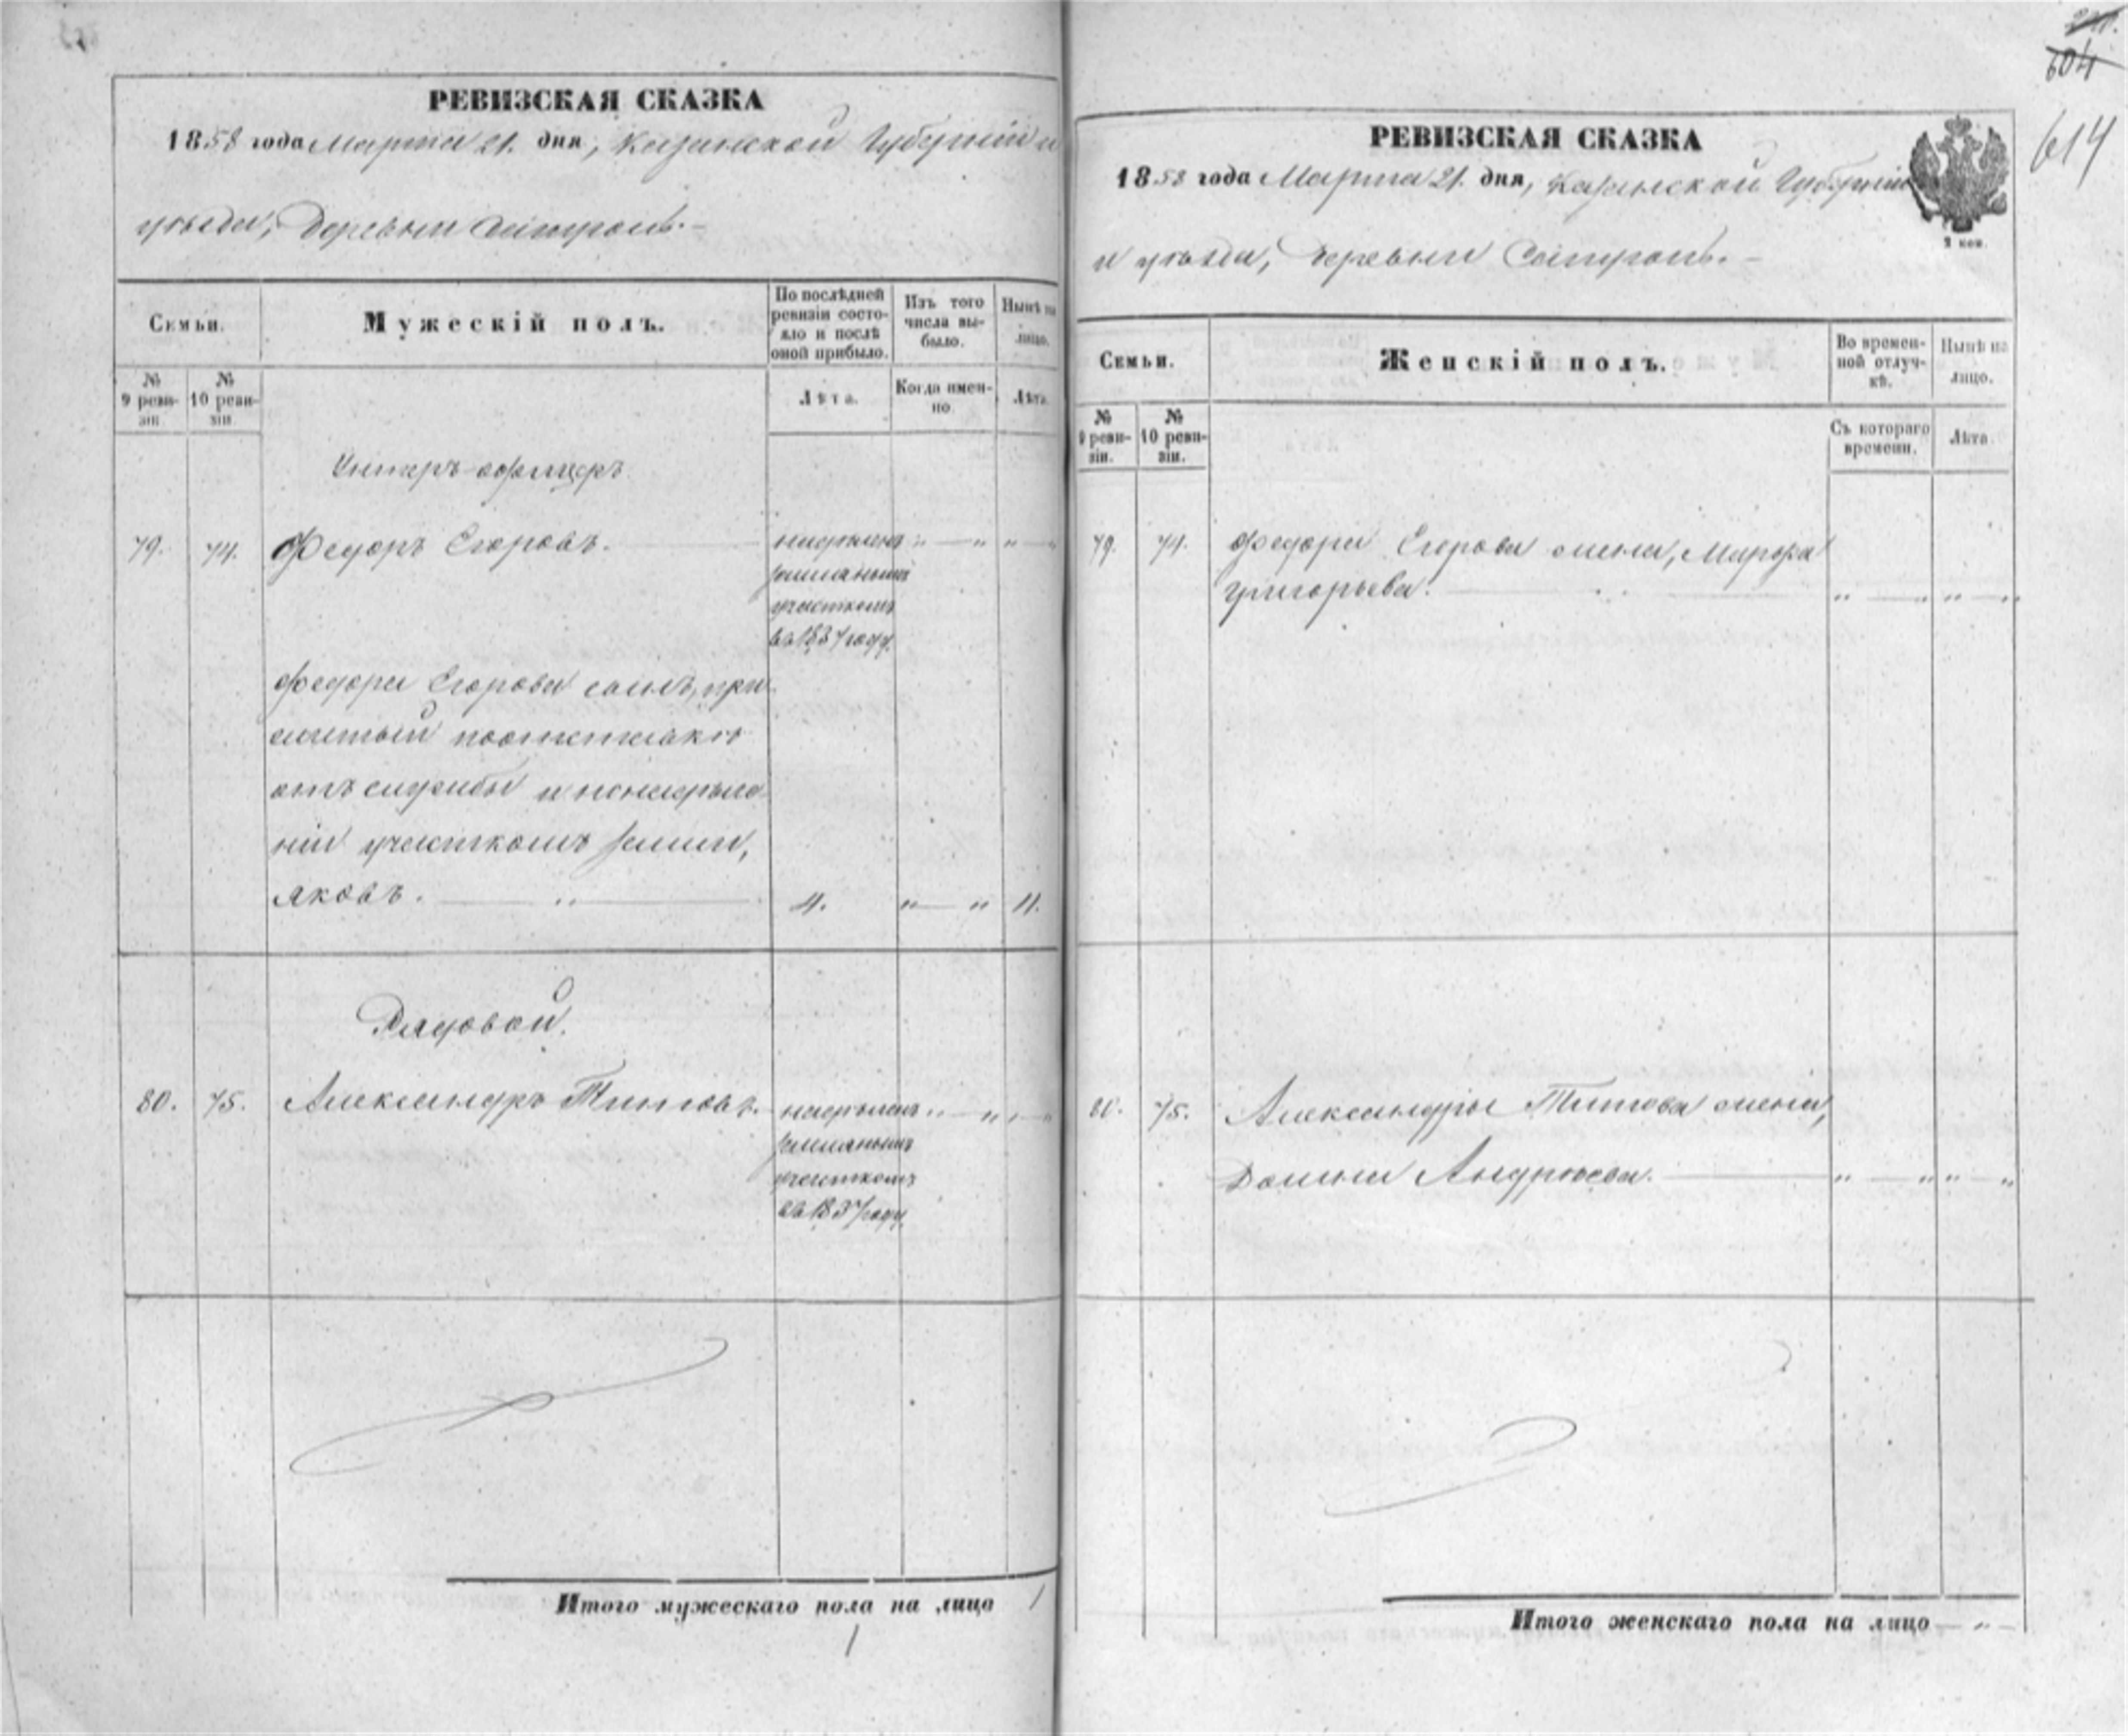 РЕВИЗСКАЯ СКАЗКА
1858 года Марта 21. дня, Казанской Губерніи и
уѣзда, Деревни
Семьи.
Мужескій полъ.
По послѣдней ревизіи состояло и послѣ оной прибыло.
Изъ того числа выбыло.
Нынѣ на лицо.
№ 9 ревизіи.
№ 10 ревизіи.
Лѣта.
Когда именно.
Лѣта.
Унтеръ-офицеръ.
79. 74. Федоръ Егоровъ. надѣленъ „ — „ „ — „
земляным
участкомъ
въ 1837 году.
Федора Егорова сынъ, при-
житый по отставкѣ
отъ службы и
ніи участкомъ земли,
Яковъ. — „ — 4. „ — „ 4.
Рядовой.
80. 75. Александръ Титовъ. надѣленъ „ — „ „ — „
земляным
участкомъ
въ 1837 году.
Итого мужескаго пола на лицо 1
1
211.
604
614
РЕВИЗСКАЯ СКАЗКА
1858 года Марта 21. дня, Казанской Губерніи
2 коп.
и уѣзда, деревни
Семьи.
Женскій полъ.
Во временной отлучкѣ.
Нынѣ на лицо.
№ 9 ревизіи.
№ 10 ревизіи.
Съ котораго времени.
Лѣта.
79. 74. Федора Егорова жена, Марфа
Григорьева. — „ — „ „ — „
80. 75. Александра Титова жена,
Домна Андрѣева. — „ — „ „ — „
Итого женскаго пола на лицо — „ —